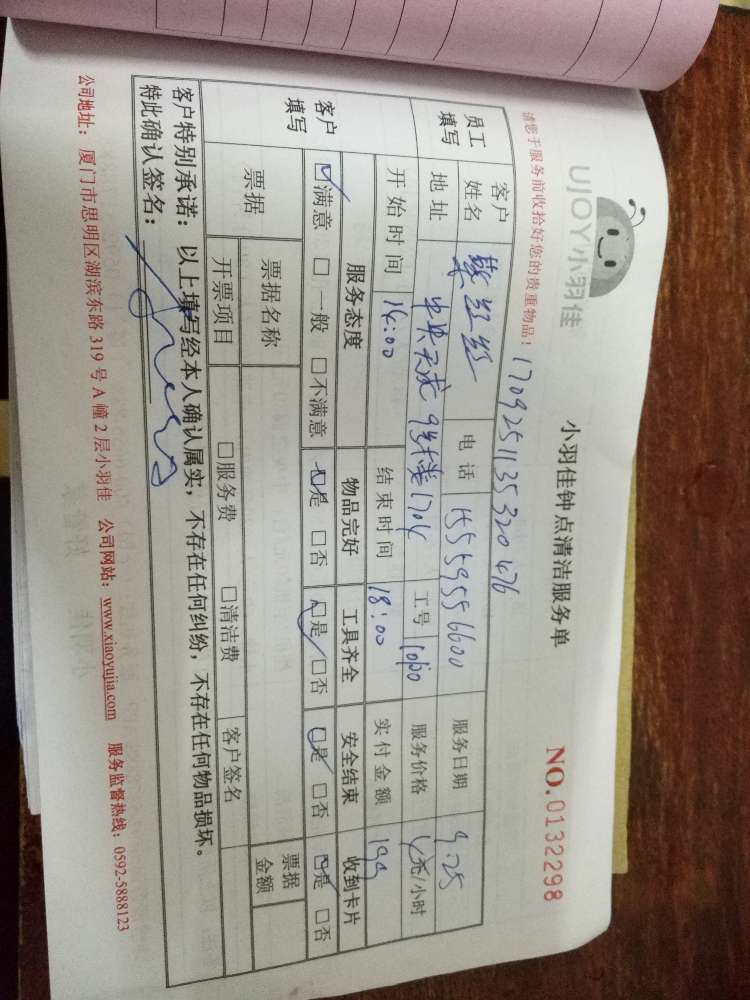 UJOY小羽佳
小羽佳钟点清洁服务单
NO.0132298
请您于服务前收拾好您的贵重物品！
1709251135320476
员工填写
客户姓名
电话
15559556600
服务日期
9.25
地址
9号楼1704
工号
服务价格
元/小时
开始时间
14:00
结束时间
18:00
实付金额
199
客户填写
服务态度
物品完好
工具齐全
安全结束
收到卡片
☑满意 □一般 □不满意
☑是 □否
☑是 □否
☑是 □否
☑是 □否
票据
票据名称
票据金额
开票项目
□服务费
□清洁费
客户签名
客户特别承诺：以上填写经本人确认属实，不存在任何纠纷，不存在任何物品损坏。
特此确认签名：
公司地址：厦门市思明区湖滨东路 319 号 A 幢 2 层小羽佳 公司网站：www.xiaoyujia.com 服务监督热线：0592-5888123